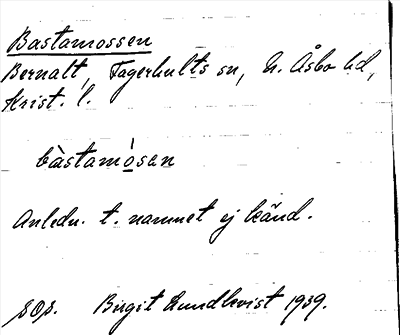 Bastamossen
Bernalt, Fagerhults sn, N. Åsbo hd,
Krist. l.
bàstamò̲san
Anledn. t. namnet ej känd.
SOS. Birgit Lundkvist 1939.